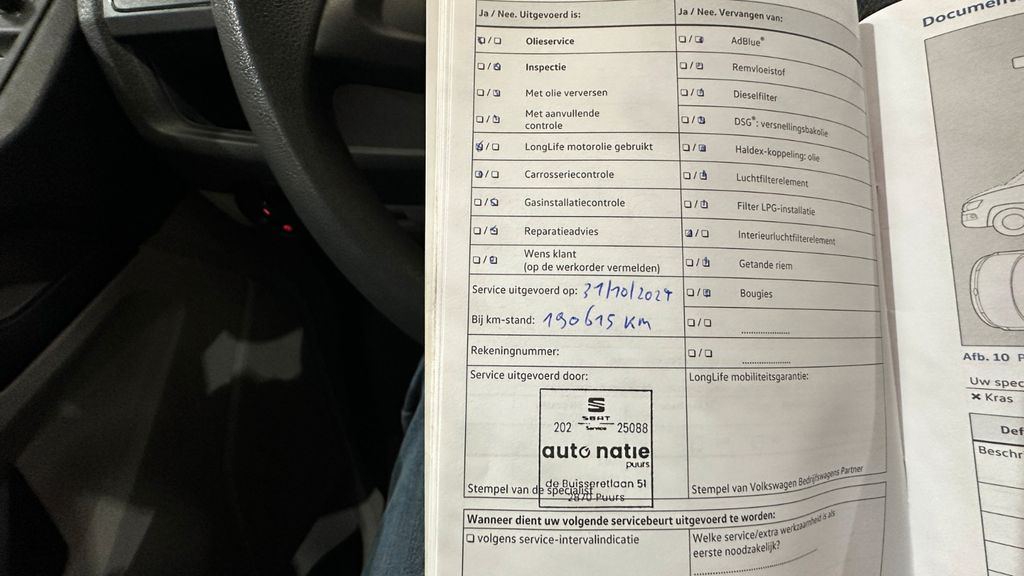 Ja / Nee. Uitgevoerd is:
Olieservice
Inspectie
Met olie verversen
Met aanvullende
controle
LongLife motorolie gebruikt
Carrosseriecontrole
Gasinstallatiecontrole
Reparatieadvies
Wens klant
(op de werkorder vermelden)
Service uitgevoerd op: 31/10/2024
Bij km-stand: 190615 km
Rekeningnummer:
Service uitgevoerd door:
SEAT
202 Service 25088
auto natie
puurs
de Buisseretlaan 51
2870 Puurs
Stempel van de specialist
Ja / Nee. Vervangen van:
AdBlue®
Remvloeistof
Dieselfilter
DSG®: versnellingsbakolie
Haldex-koppeling: olie
Luchtfilterelement
Filter LPG-installatie
Interieurluchtfilterelement
Getande riem
Bougies
LongLife mobiliteitsgarantie:
Stempel van Volkswagen Bedrijfswagens Partner
Wanneer dient uw volgende servicebeurt uitgevoerd te worden:
volgens service-intervalindicatie
Welke service/extra werkzaamheid is als
eerste noodzakelijk?
Afb. 10
Uw spec
Kras
Def
Beschr